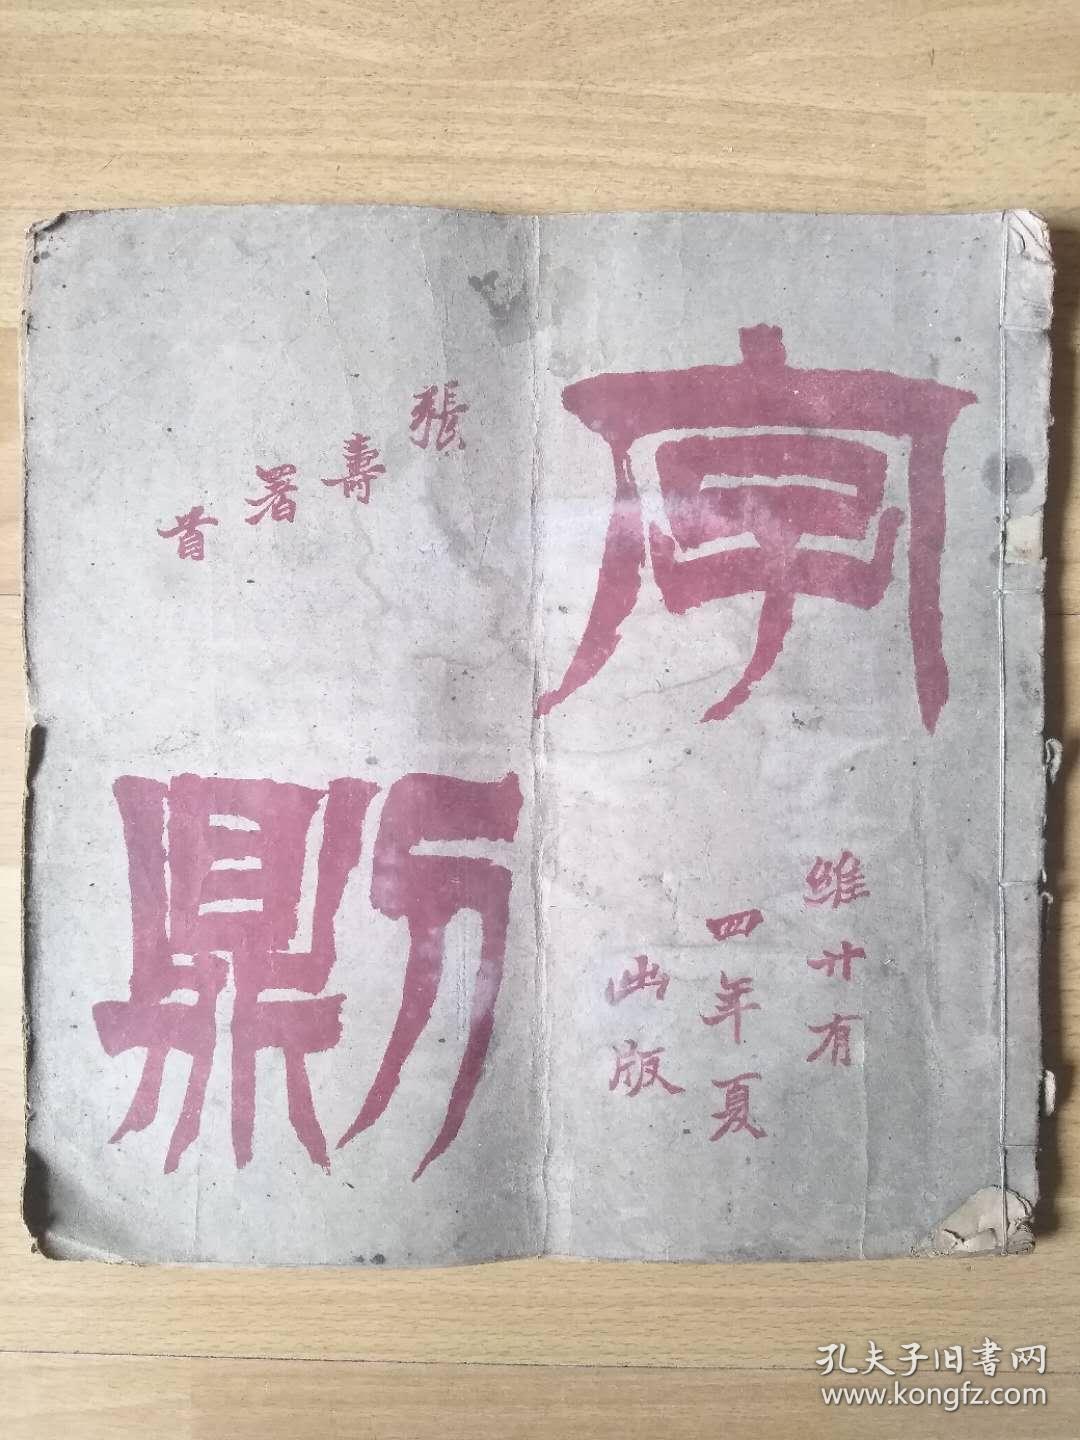 維廿有
四年夏
出版
張壽署首
則
孔夫子旧書网
www.kongfz.com